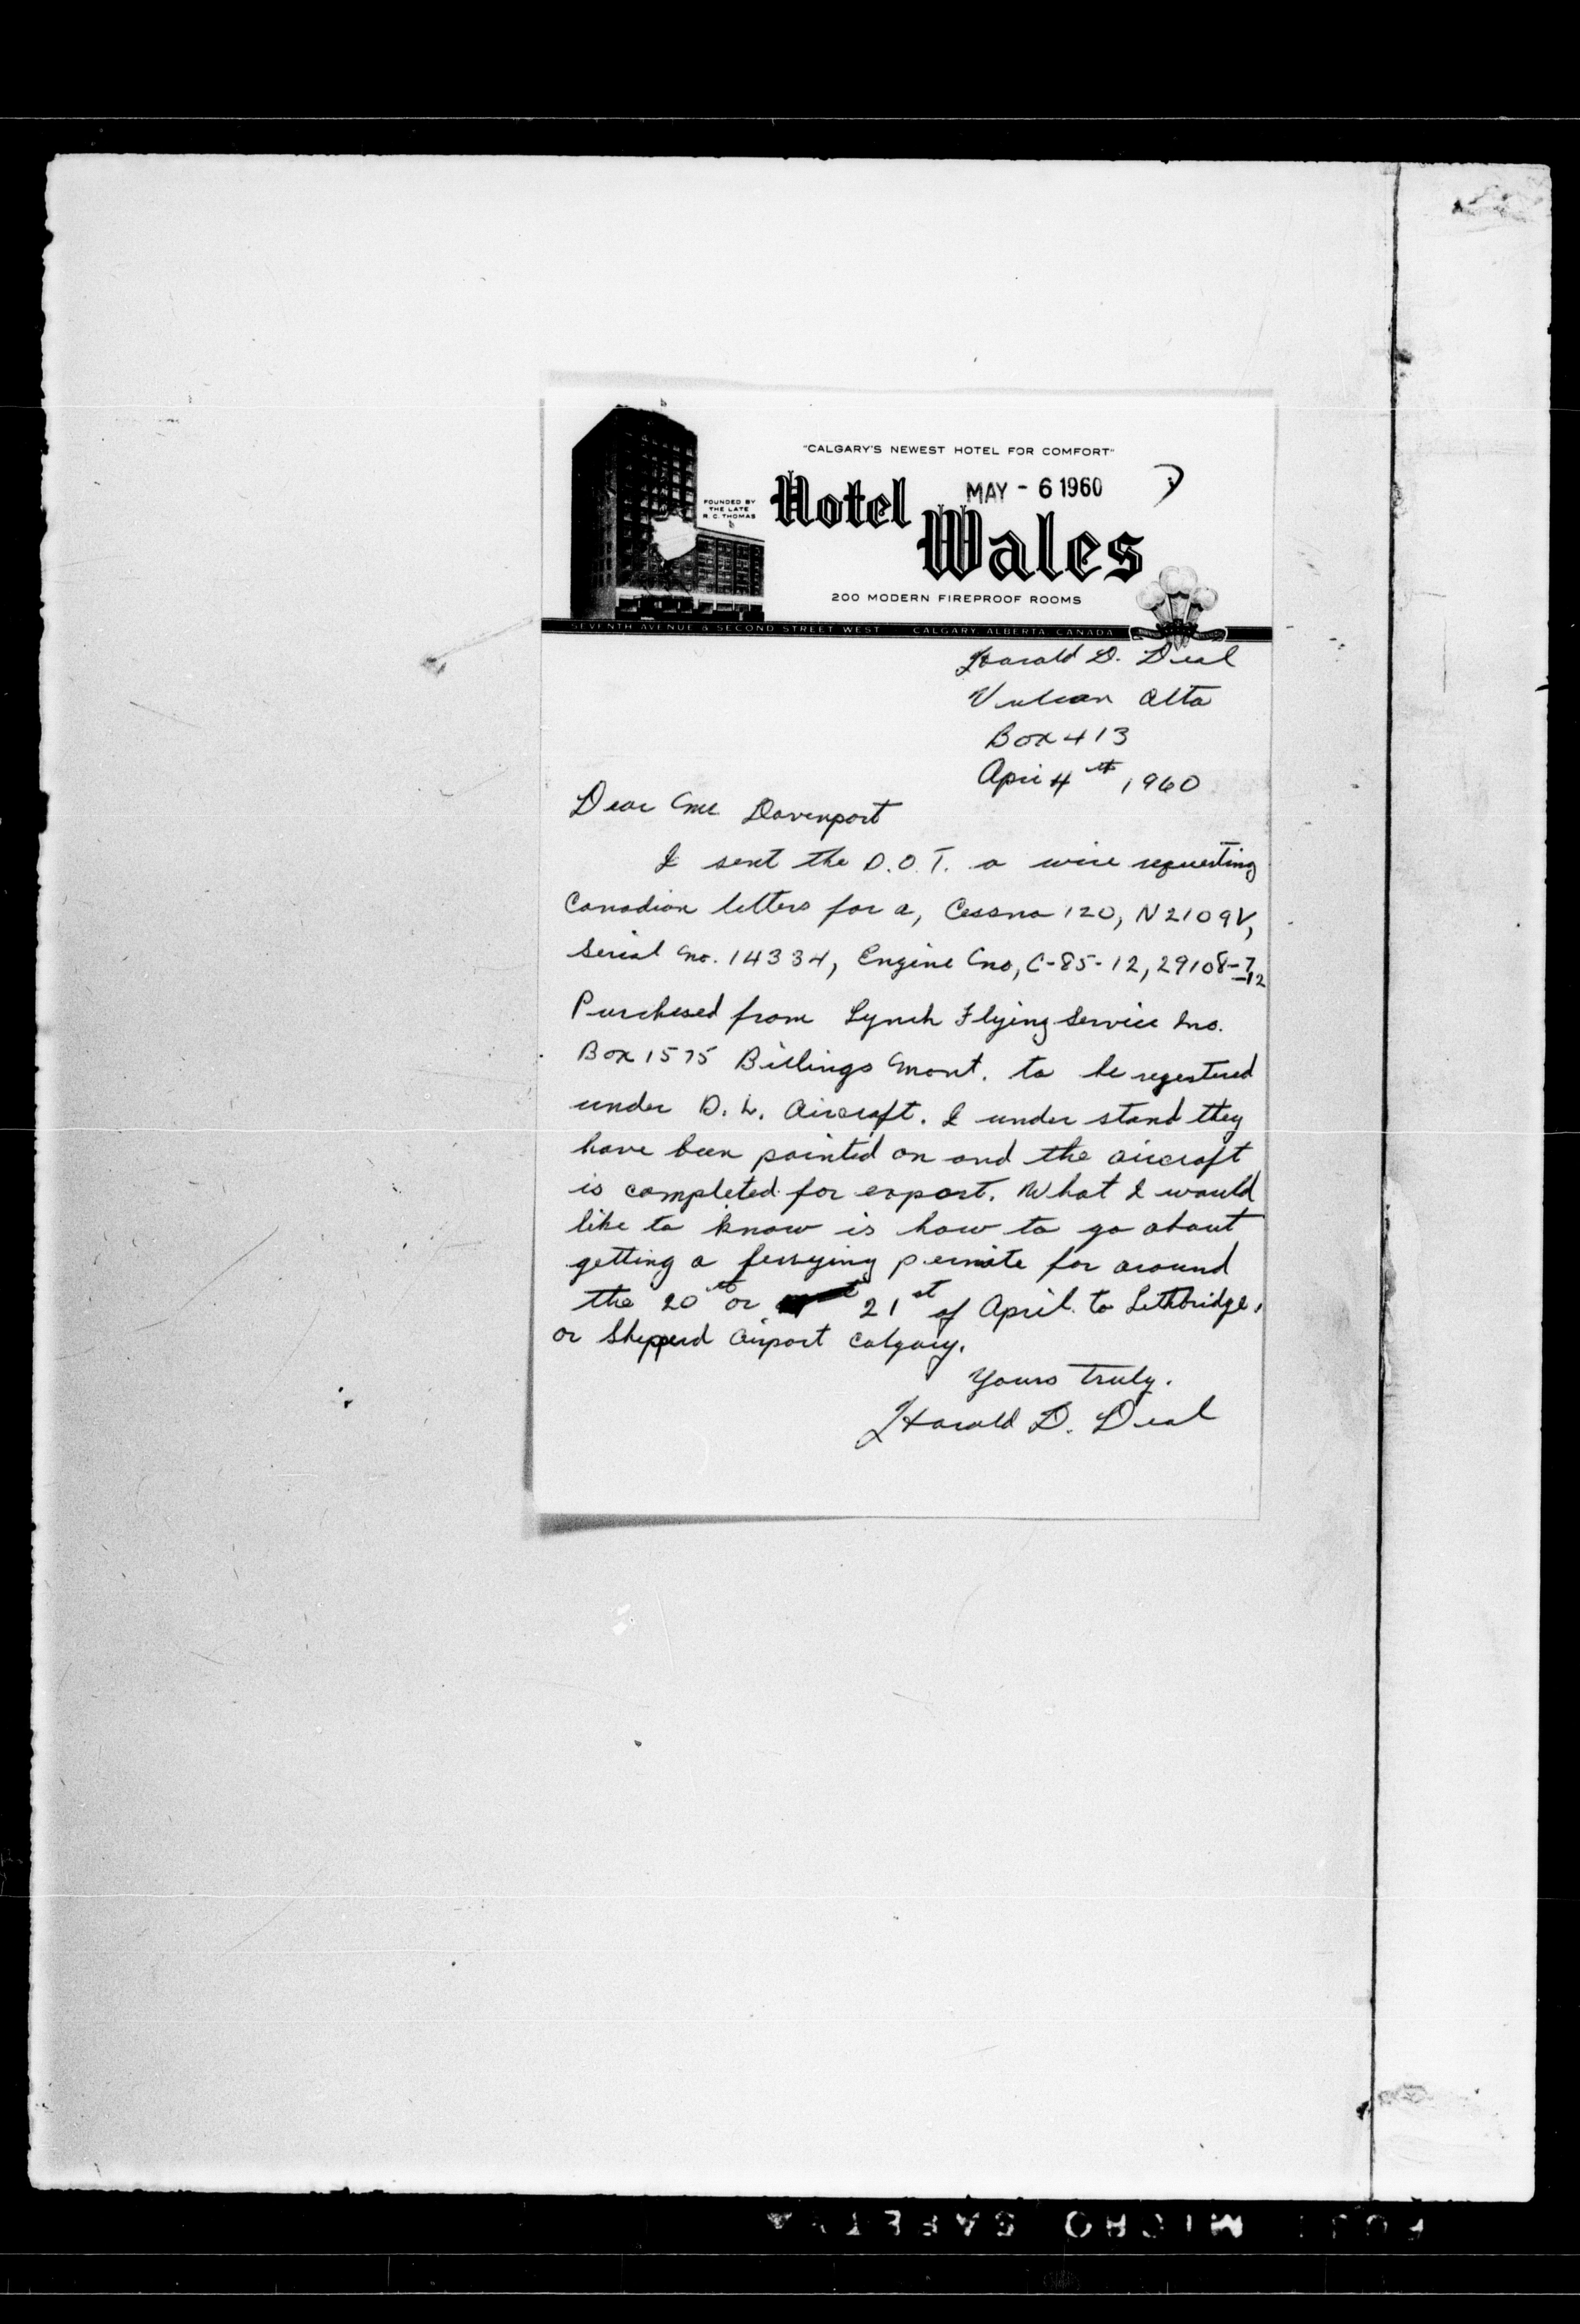 "CALGARY'S NEWEST HOTEL FOR COMFORT"
MAY - 6 1960
FOUNDED BY
THE LATE
R. C. THOMAS
Hotel
Wales
200 MODERN FIREPROOF ROOMS
SEVENTH AVENUE & SECOND STREET WEST CALGARY, ALBERTA, CANADA
Harald D. Deal
Vulcan Alta
Box 413
Apri 4th, 1960
Dear Mr. Davenport
I sent the D.O.T. a wire requesting
Canadian letters for a, Cessna 120, N2109V,
Serial no. 14334, Engine no, C-85-12, 29108-7-12
Purchesed from Lynch Flying Service Inc.
Box 1575 Billings Mont. to be regestered
under D. L. Aircraft. I under stand they
have been painted on and the aircraft
is completed for export. What I would
like to know is how to go about
getting a ferrying permite for around
the 20th or 21st of April to Lethbridge,
or Shepperd Airport Calgary.
Yours truly.
Harald D. Deal
MICRO SAFETY